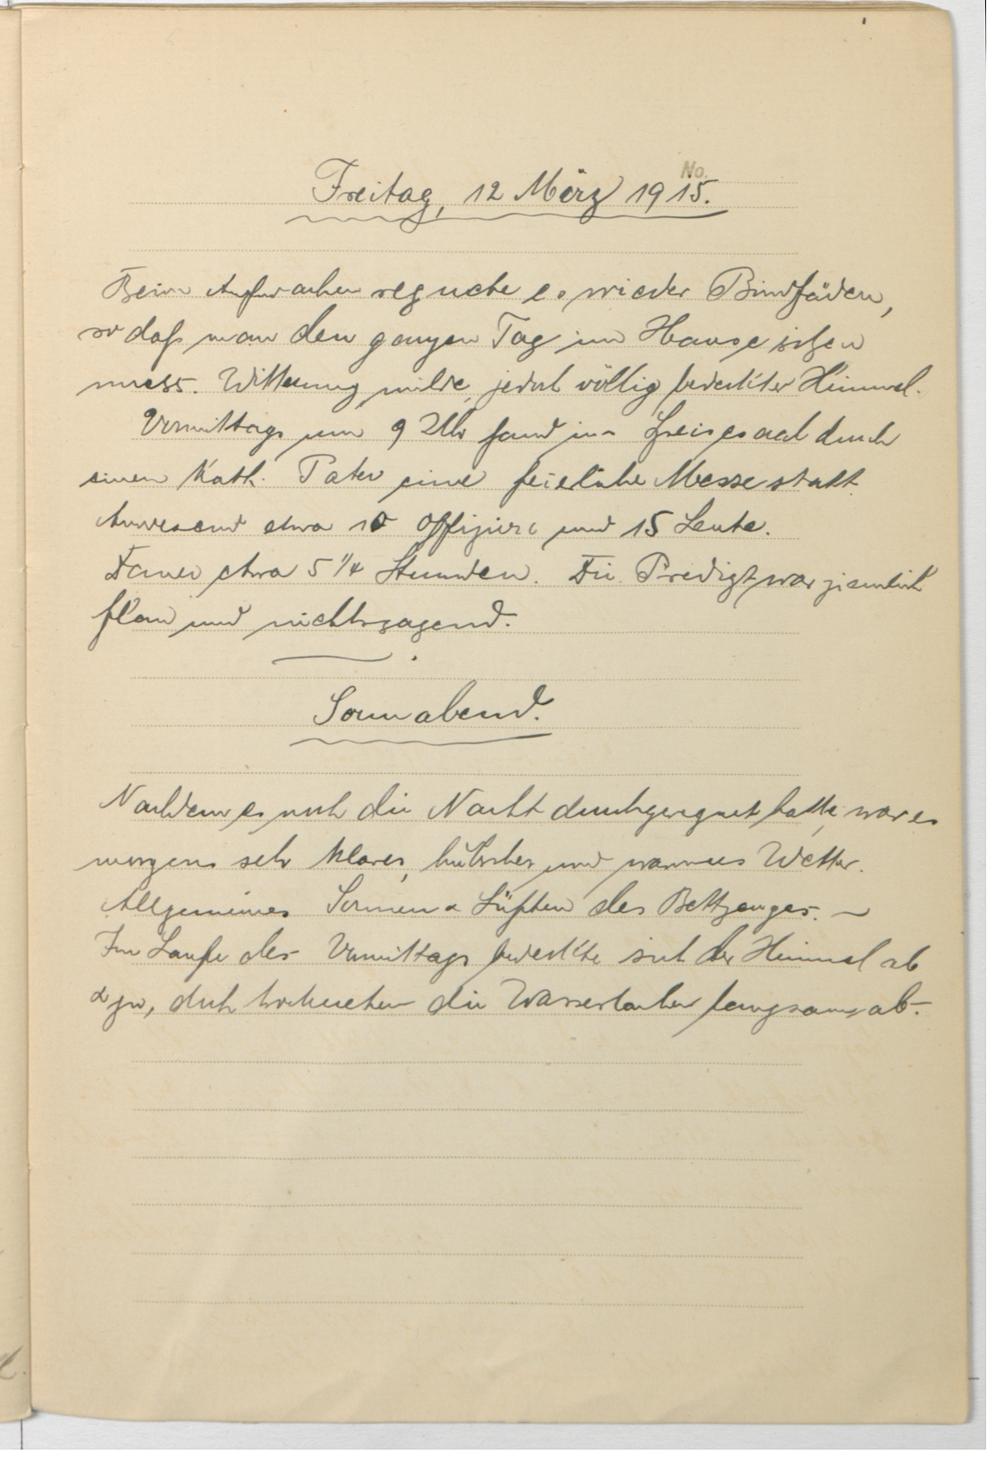 No.
Freitag, 12 März 1915.
Beim Aufwachen regnete es wieder Bindfäden,
so daß man den ganzen Tag im Hause sitzen
muss. Witterung milde, jedoch völlig bedeckter Himmel.
Vormittags um 9 Uhr fand im Speisesaal durch
einen Kath. Pater eine feierliche Messe statt.
Anwesend etwa 10 Offiziere und 15 Leute.
Dauer etwa 5/4 Stunden. Die Predigt war ziemlich
flau und nichtssagend.
Sonnabend.
Nachdem es noch die Nacht durchgeregnet hatte, war es
morgens sehr klares, hübsches und warmes Wetter.
Allgemeines Sonnen & Lüften des Bettzeuges. —
Im Laufe des Vormittags bedeckte sich der Himmel ab
& zu, doch trockneten die Wasserlachen langsam ab.